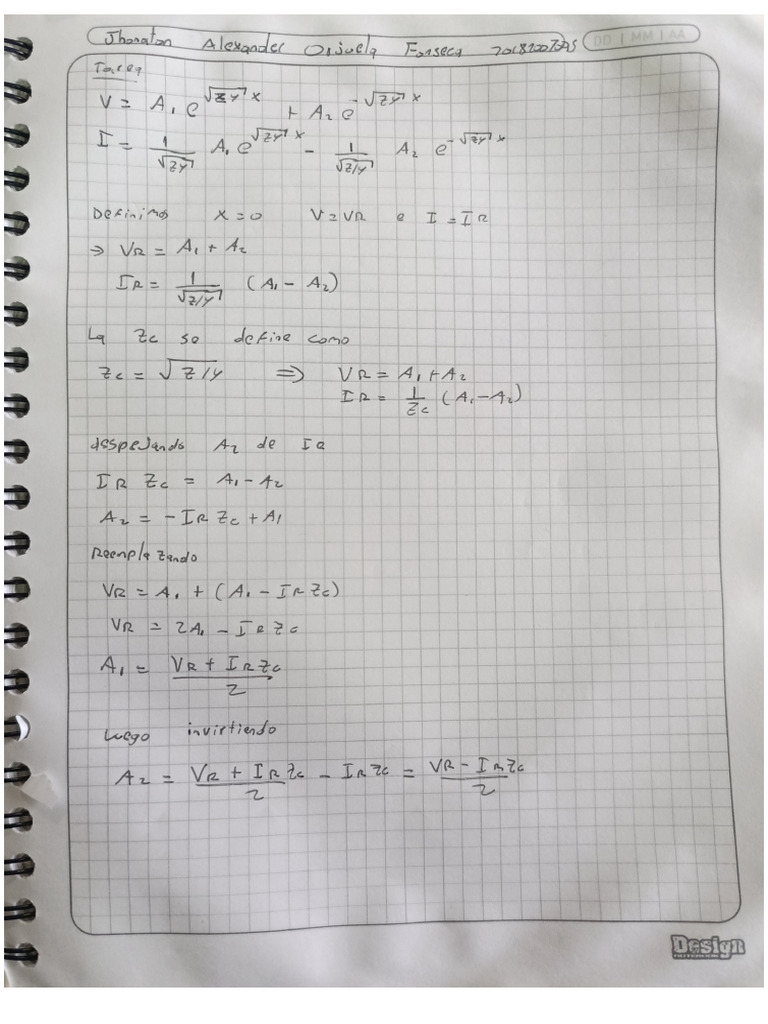 Jhonatan Alexander Orjuela Fonseca
DD | MM | AA
Tarea
V = A₁ e^(√(zy) x) + A₂ e^(-√(zy) x)
I = 1/√(z/y) A₁ e^(√(zy) x) - 1/√(z/y) A₂ e^(-√(zy) x)
Definimos x=0 V=VR e I=IR
⇒ VR = A₁ + A₂
IR = 1/√(z/y) (A₁ - A₂)
La Zc se define como
Zc = √(z/y) ⇒ VR = A₁ + A₂
IR = 1/Zc (A₁ - A₂)
despejando A₂ de IR
IR Zc = A₁ - A₂
A₂ = -IR Zc + A₁
Reemplazando
VR = A₁ + (A₁ - IR Zc)
VR = 2A₁ - IR Zc
A₁ = (VR + IR Zc)/2
Luego invirtiendo
A₂ = (VR + IR Zc)/2 - IR Zc = (VR - IR Zc)/2
Design